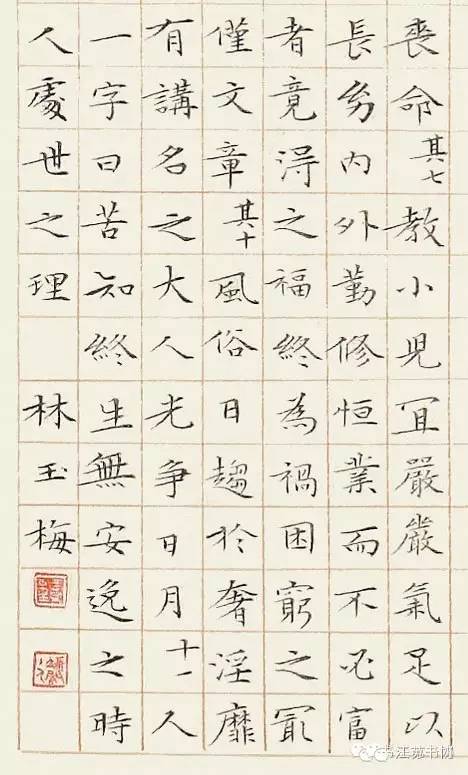 喪命其七教小兒宜嚴嚴氣足以
長幼内外勤修恒業而不必富
者竟得之福終為禍困窮之最
僅文章其十風俗日趨於奢淫靡
有講名之大人光争日月十一人
一字曰苦知終生無安逸之時
人處世之理 林玉梅
江苑书协